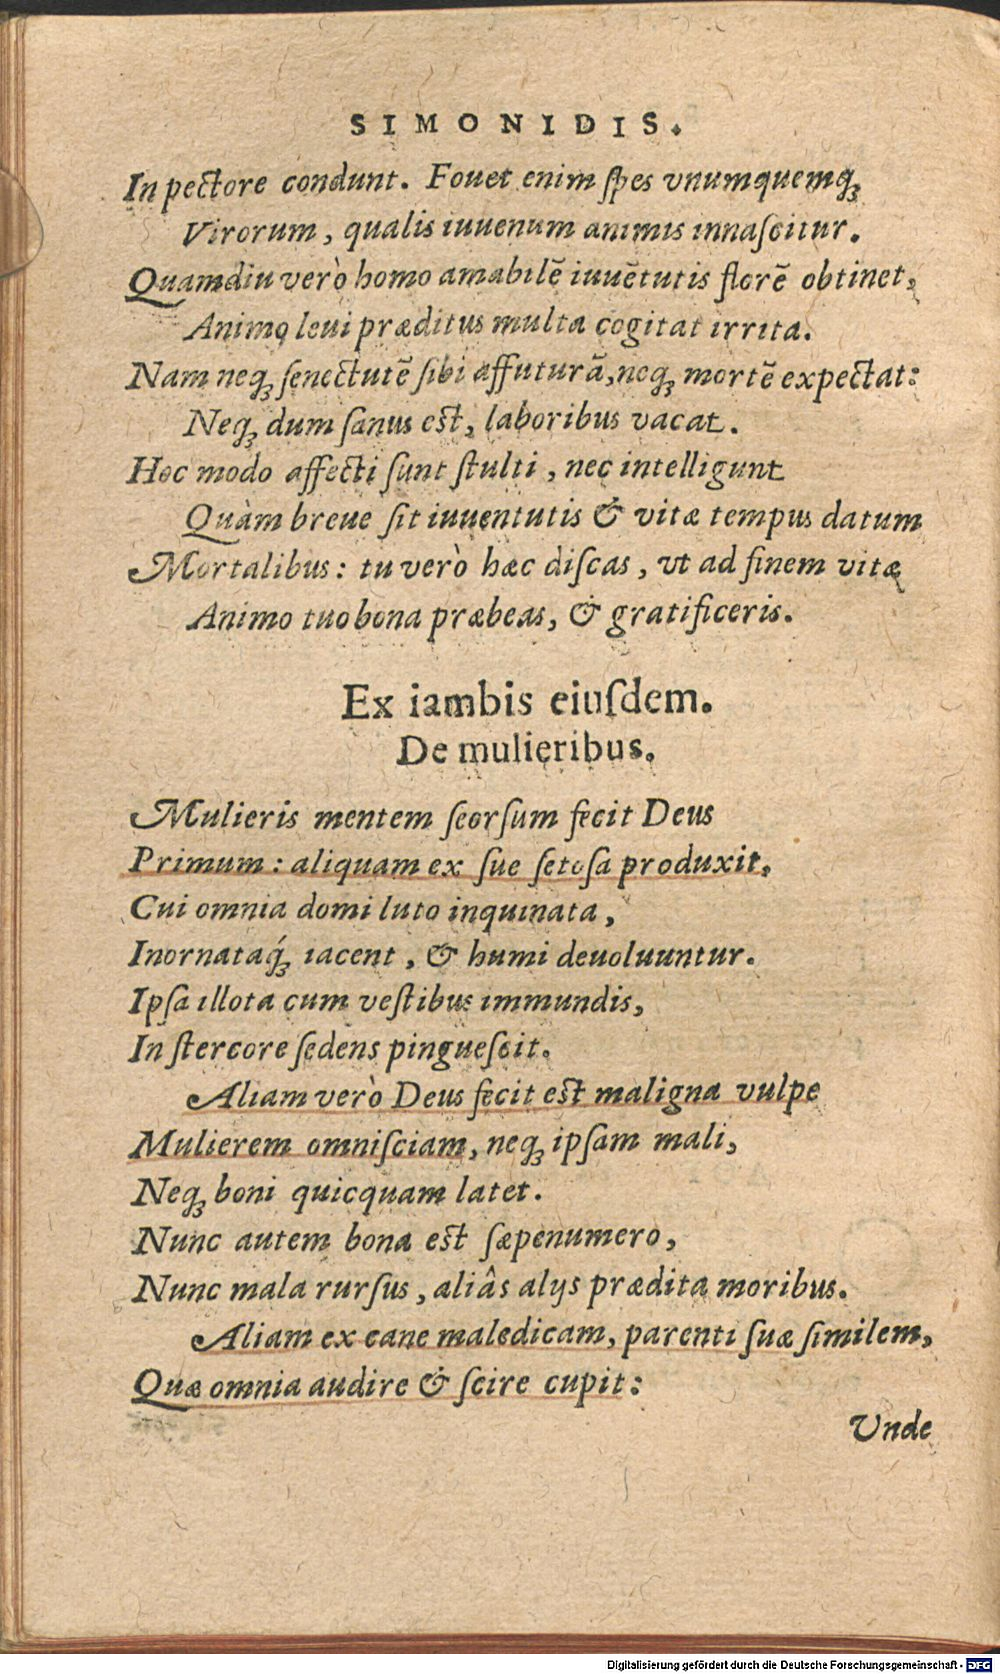 SIMONIDIS.
In pectore condunt. Fouet enim ſpes vnumquemq́ꝫ
Virorum, qualis iuuenum animis innaſcitur.
Quamdiu verò homo amabilẽ iuuẽtutis florẽ obtinet,
Animo leui præditus multa cogitat irrita.
Nam neqꝫ ſenectutẽ ſibi affuturã, neqꝫ mortẽ expectat:
Neqꝫ dum ſanus est, laboribus vacat.
Hoc modo affecti ſunt ſtulti, nec intelligunt
Quàm breue ſit iuuentutis & vitæ tempus datum
Mortalibus: tu verò hæc diſcas, vt ad finem vitæ
Animo tuo bona præbeas, & gratificeris.
Ex iambis eiuſdem.
De mulieribus.
Mulieris mentem ſeorſum fecit Deus
Primum: aliquam ex ſue ſetoſa produxit,
Cui omnia domi luto inquinata,
Inornataq́ꝫ iacent, & humi deuoluuntur.
Ipſa illota cum veſtibus immundis,
In ſtercore ſedens pingueſcit.
Aliam verò Deus fecit est maligna vulpe
Mulierem omniſciam, neqꝫ ipſam mali,
Neqꝫ boni quicquam latet.
Nunc autem bona est ſæpenumero,
Nunc mala rurſus, aliâs alijs prædita moribus.
Aliam ex cane maledicam, parenti ſuæ ſimilem,
Quæ omnia audire & ſcire cupit:
Vnde
Digitalisierung gefördert durch die Deutsche Forschungsgemeinschaft - DFG